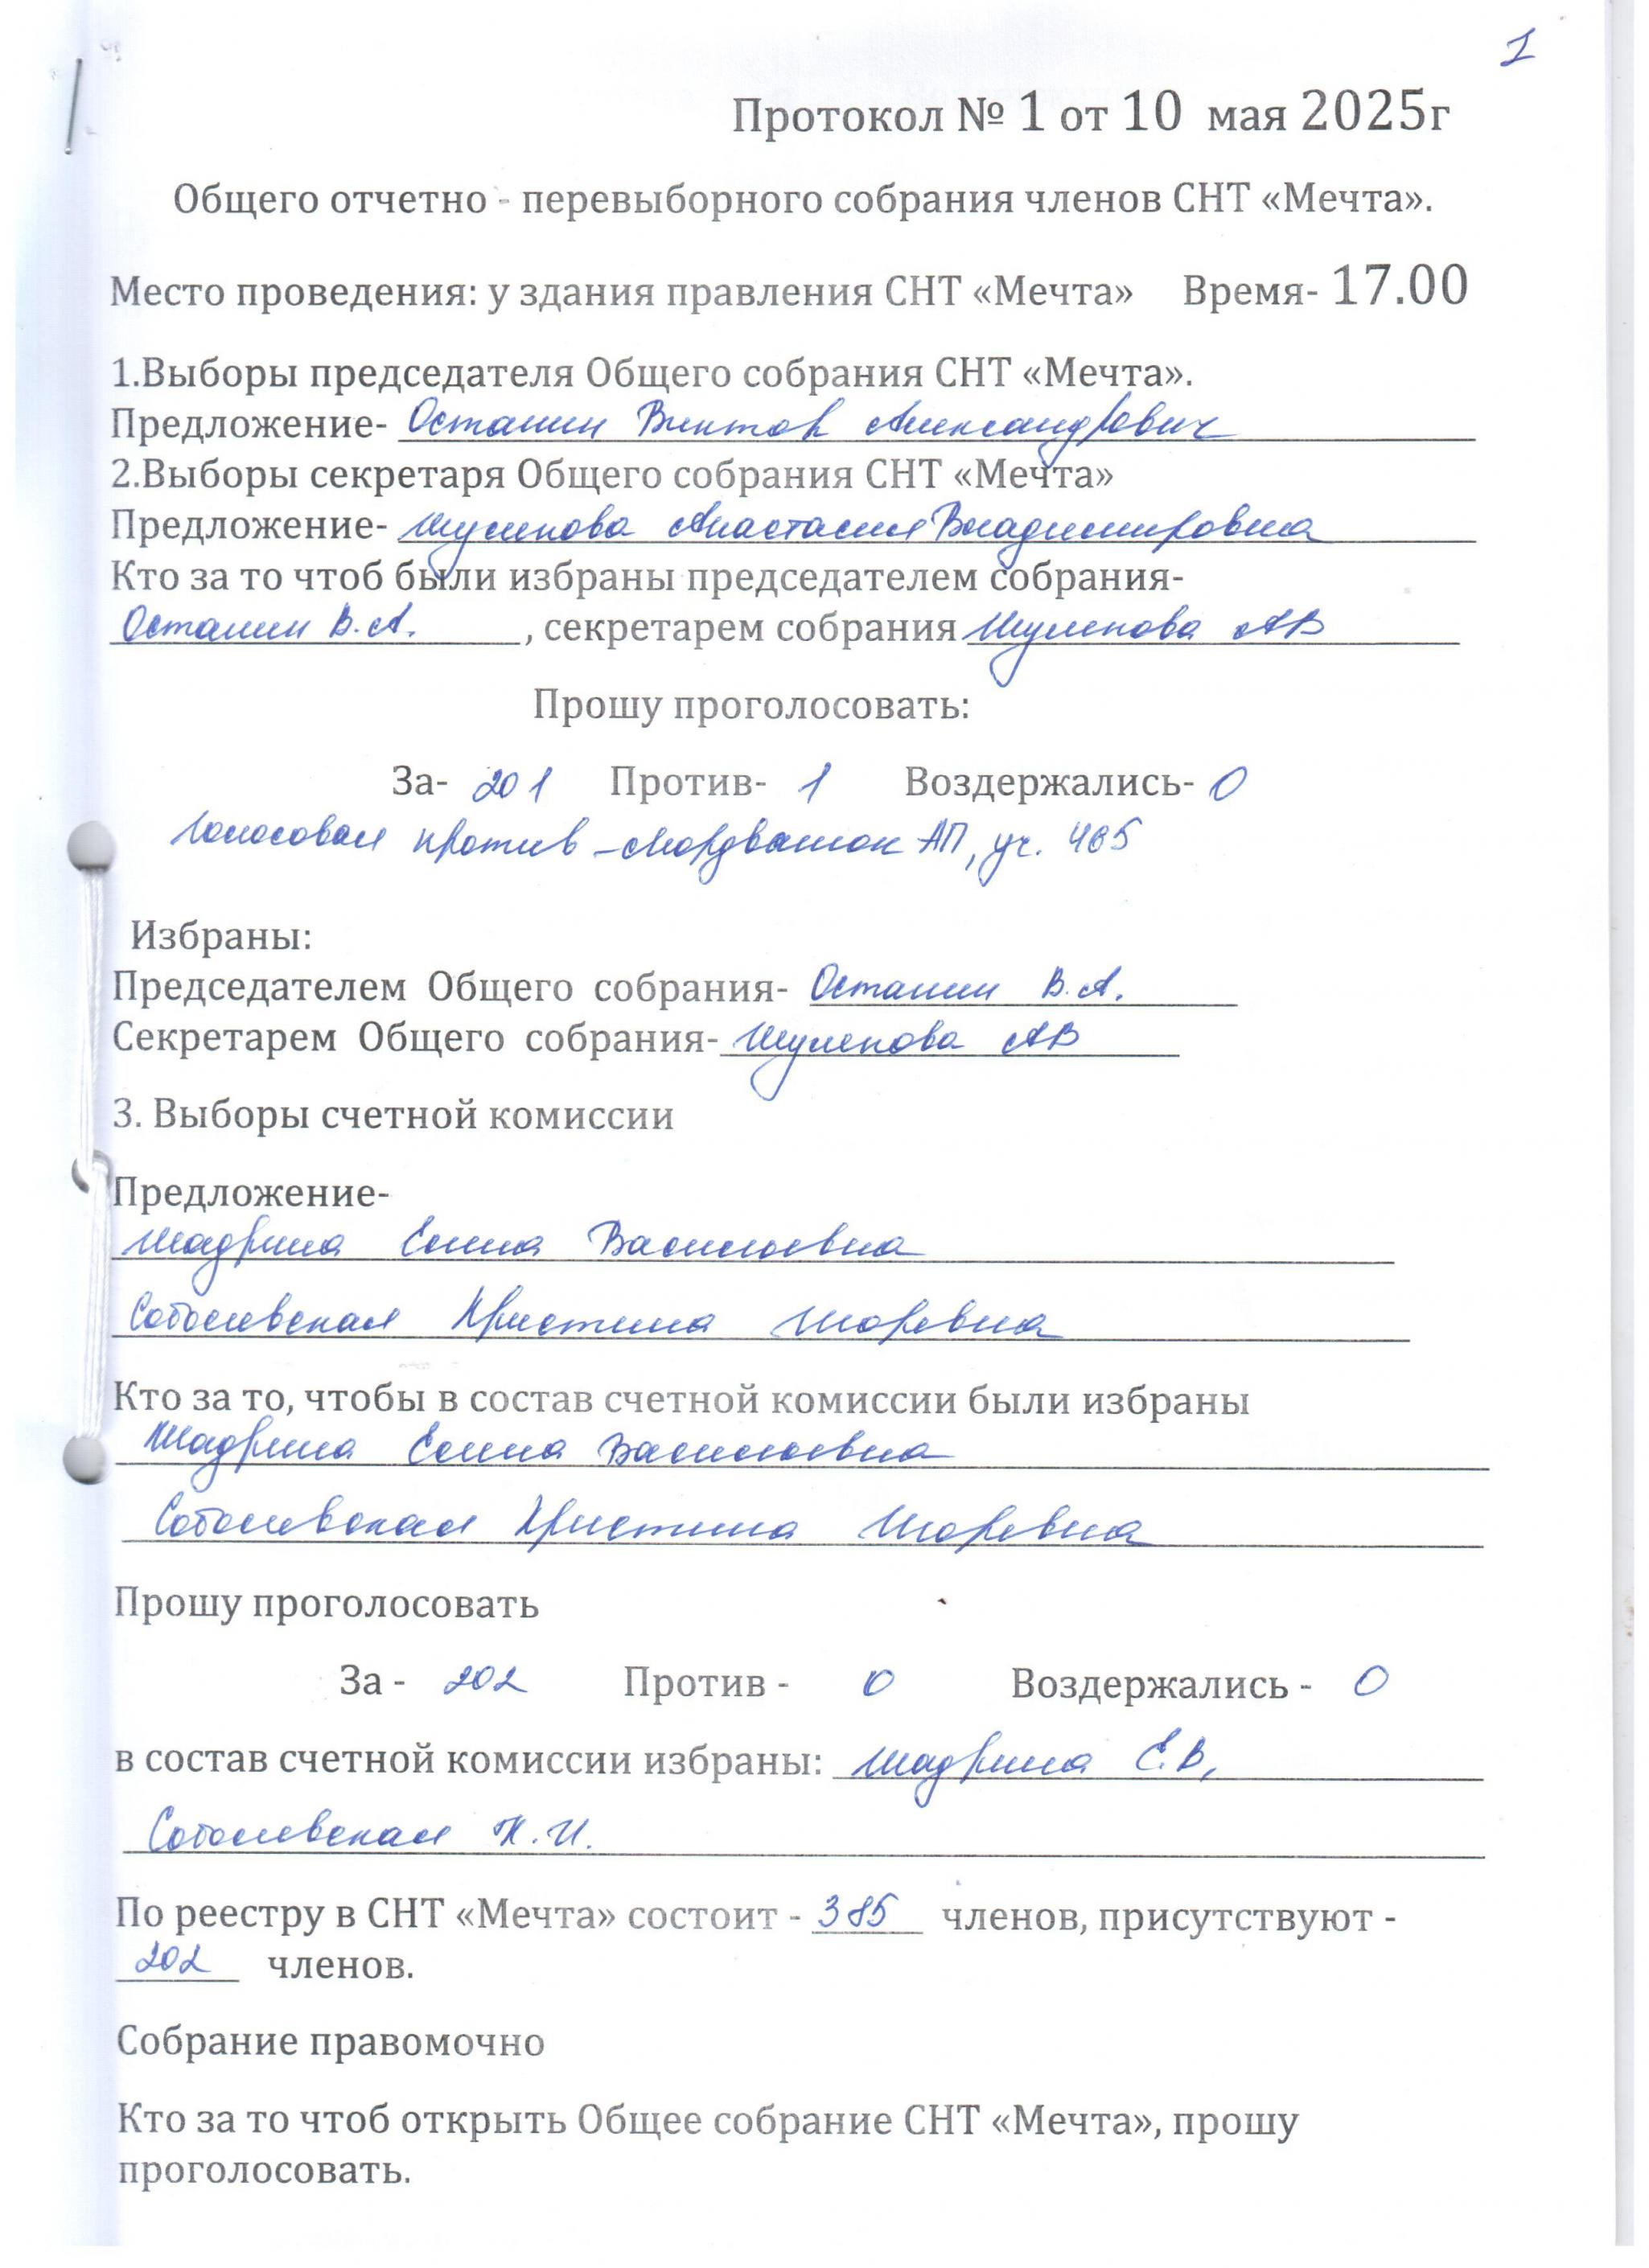 1
Протокол № 1 от 10 мая 2025г
Общего отчетно - перевыборного собрания членов СНТ «Мечта».
Место проведения: у здания правления СНТ «Мечта» Время- 17.00
1.Выборы председателя Общего собрания СНТ «Мечта».
Предложение- Останин Виктор Александрович
2.Выборы секретаря Общего собрания СНТ «Мечта»
Предложение- Шуленова Анастасия Владимировна
Кто за то чтоб были избраны председателем собрания-
Останин В.А. , секретарем собрания Шуленова АВ
Прошу проголосовать:
За- 201 Против- 1 Воздержались- 0
Голосовал против - Мордвашок АП, уч. 465
Избраны:
Председателем Общего собрания- Останин В.А.
Секретарем Общего собрания- Шуленова АВ
3. Выборы счетной комиссии
Предложение-
Шадрина Елена Васильевна
Соболевская Кристина Игоревна
Кто за то, чтобы в состав счетной комиссии были избраны
Шадрина Елена Васильевна
Соболевская Кристина Игоревна
Прошу проголосовать
За - 202 Против - 0 Воздержались - 0
в состав счетной комиссии избраны: Шадрина Е.В,
Соболевская К.И.
По реестру в СНТ «Мечта» состоит - 385 членов, присутствуют -
202 членов.
Собрание правомочно
Кто за то чтоб открыть Общее собрание СНТ «Мечта», прошу
проголосовать.